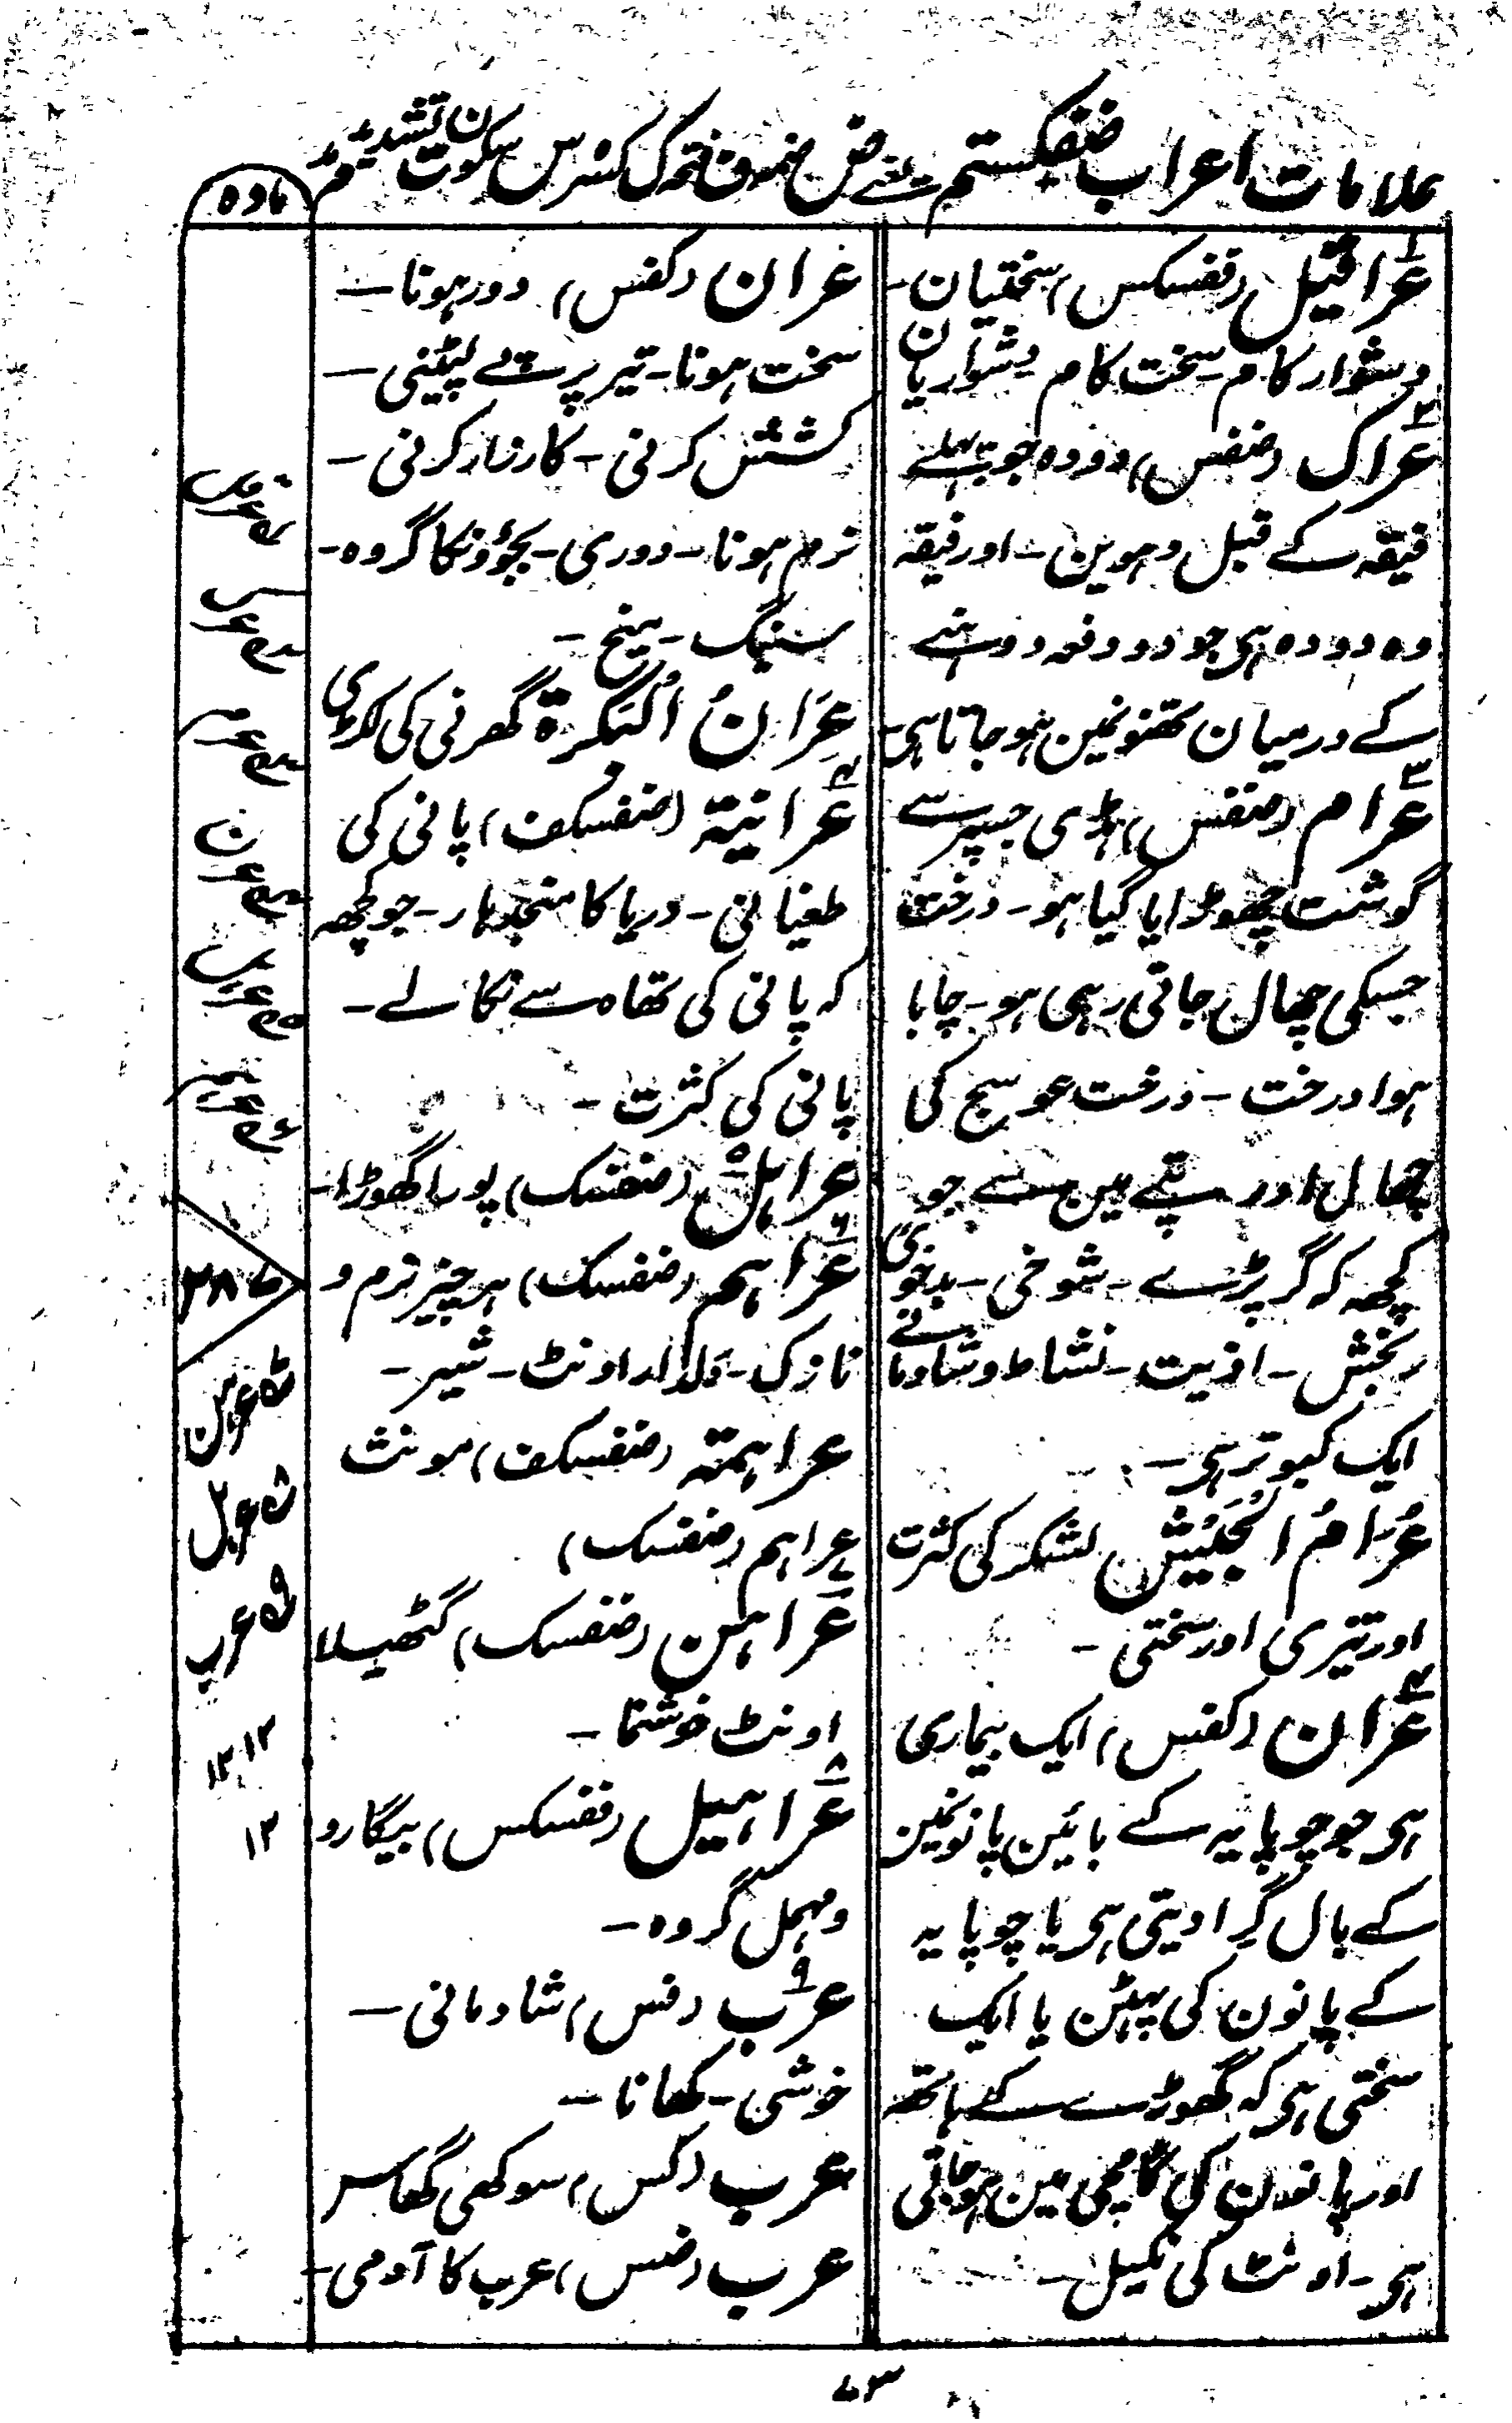 علامات اعراب ضفکستم یعنے ض ضمہ ف فتحہ ک کسرہ س سکون ت تشدید م مد
مادہ
عراقیل (قفسکس) سختیان -
دشوار کام - سخت کام دشواریان
عراک (ضفس) دودہ جو پہلے
فیقہ کے قبل دہوین - اور فیقہ
وہ دودہ ہی جو دو دفعہ دوہنے
کے درمیان تھنونمین ہو جاتا ہی -
عرام (ضفس) ہڈی جسپر سے
گوشت چھوڑایا گیا ہو - درخت
جسکی چھال جاتی رہی ہو - چابا
ہوا درخت - درخت عوسج کی
چھال اور پتے مین سے جو
کچھ کہ گر پڑے - شوخی - بدخوی
رنجش - اذیت - نشاط و شادمانے
ایک کبوتر ہی -
عُرَامُ الْجَیْش لشکر کی کثرت
اور تیزی اور سختی -
عران (کفس) ایک بیماری
ہی جو چوپایہ کے بائین پانونمین
کے بال گرا دیتی ہی یا چوپایہ
کے پانون کی پھٹن یا ایک
سختی ہی کہ گھوڑے کے ہاتھ
اور پانون کی گامچی مین ہو جاتی
ہی - اونٹ کی نکیل -
عران (کفس) دور ہونا -
سخت ہونا - تیر پر تے لپٹینی -
کشش کرنی - کارزار کرنی -
نرم ہونا - دوری - بچوونکا گروہ -
سنیگ - میخ -
عِرَانُ الْبَکرۃ گھرنی کی لکڑی
عرانیۃ (ضفسکف) پانی کی
طغیانی - دریا کا منجدہار - جو کچھ
کہ پانی کی تھاہ سے نکالے -
پانی کی کثرت -
عراہل (ضفسک) پورا گھوڑا -
عراہم (ضفسک) ہر چیز نرم و
نازک - دلدار اونٹ - شیر -
عراہمۃ (ضفسکف) مونث
عراہم (ضفسک)
عراہن (ضفسک) گٹھیلا
اونٹ خوشنما -
عراہیل (ففسکس) بیگارو
و مہمل گروہ -
عرب (فس) شادمانی -
خوشی - کھانا -
عرب (کس) سوکھی گھاس
عرب (ضس) عرب کا آدمی -
۱۲ ۱۲
۱۲
۷۳